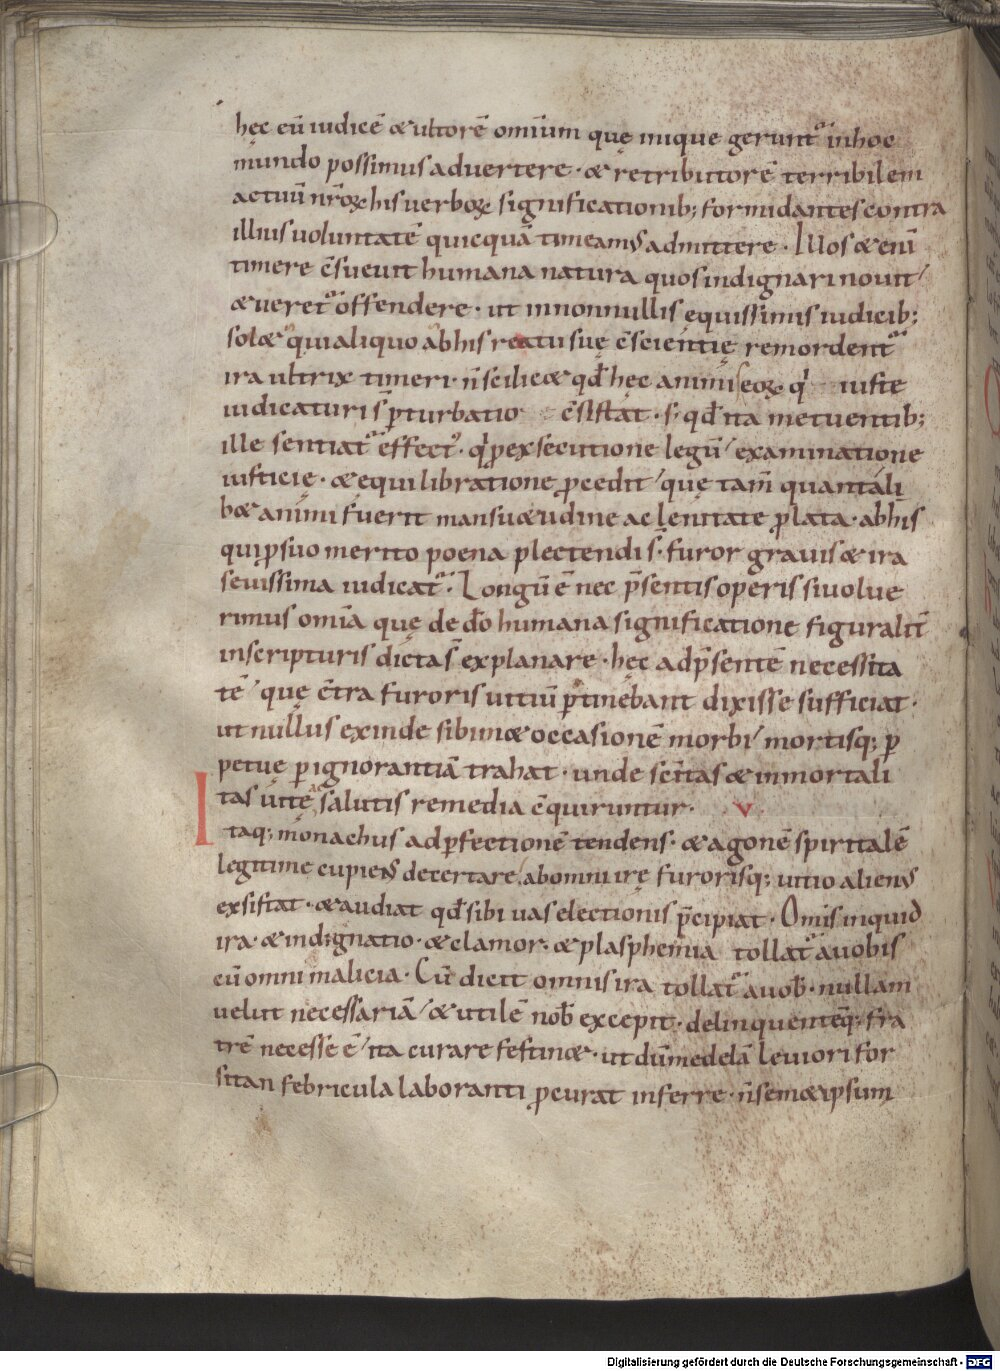 hęc eū iudicē & ultorē omīum quę inique gerunt᷑ in hoc
mundo possimus advertere · & retributorē terribilem
actuū nr̄oꝝ his verboꝝ significationib; formidantes contra
illius voluntatē quicquā timeamꝰ admittere · Illos & enī
timere c̄suevit humana natura quos indignari novit /
& veret᷑ offendere · ut in nonnullis equissimis iudicib;
sol& qui aliquo ab his reatu suę c̄scientię remordent᷑
ira ultrix timeri · n̄ scilic& qđ hęc animis eoꝝ q' iuste
iudicaturi s̄ ꝑturbatio c̄sistat · s; qđ ita metuentib;
ille sentiat᷑ effectꝰ · q' ꝓ exsecutione legū / examinatione
iusticię · & equilibratione ꝓcedit / quę tam̄ quantali
b& animi fuerit mansu&udine ac lenitate ꝓlata · ab his
qui ꝓ suo merito poena plectendi s̄ · furor gravis & ira
sevissima iudicat᷑ · Longū ē nec p̄sentis operis si volue
rimus omīa quę de dō humana significatione figuralit̄
in scripturis dicta s̄ explanare · hęc ad p̄sentē necessita
tē / quę c̄tra furoris vitiū ꝑtinebant dixisse sufficiat ·
ut nullus exinde sibim& occasionē morbi / mortisq; ꝑ
petuę ꝑ ignorantiā trahat · unde sc̄itas & inmortali
tas vitę salutis remedia c̄quiruntur · V
Itaq; monachus ad ꝑfectionē tendens · & agonē spiritalē
legitime cupiens decertare / ab omni irę furorisq; vitio alienꝰ
exsistat · & audiat qđ sibi vas electionis p̄cipiat · Omīs inquid
ira · & indignatio · & clamor · & plasphemia tollat᷑ a vobis
cū omni malicia · Cū dicit omnis ira tollat᷑ a vob̄ · nullam
velut necessariā / & utilē nob̄ excepit · delinquentēq; fra
trē necesse ē / ita curare festin& · ut dū medelā leviori for
sitan febricula laboranti ꝓcurat inferre · n̄ sem&ipsum
Digitalisierung gefördert durch die Deutsche Forschungsgemeinschaft - DFG